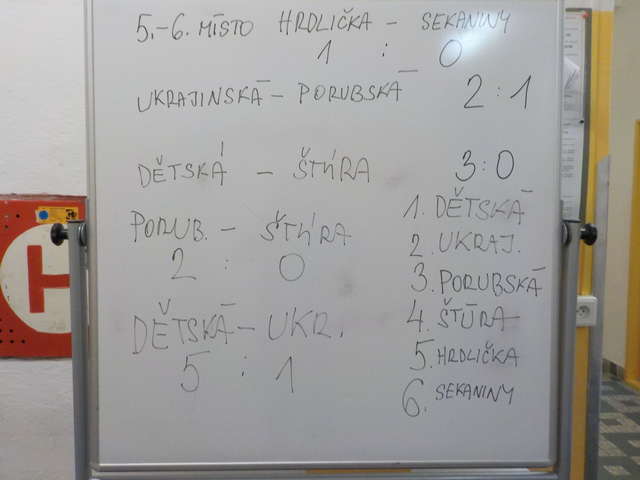 5.-6. MÍSTO HRDLIČKA - SEKANINY
1 : 0
UKRAJINSKÁ - PORUBSKÁ 2:1
DĚTSKÁ - ŠTÚRA 3:0
PORUB. - ŠTÚRA
2 : 0
DĚTSKÁ - UKR.
5 : 1
1. DĚTSKÁ
2. UKRAJ.
3. PORUBSKÁ
4. ŠTŪRA
5. HRDLIČKA
6. SEKANINY
H